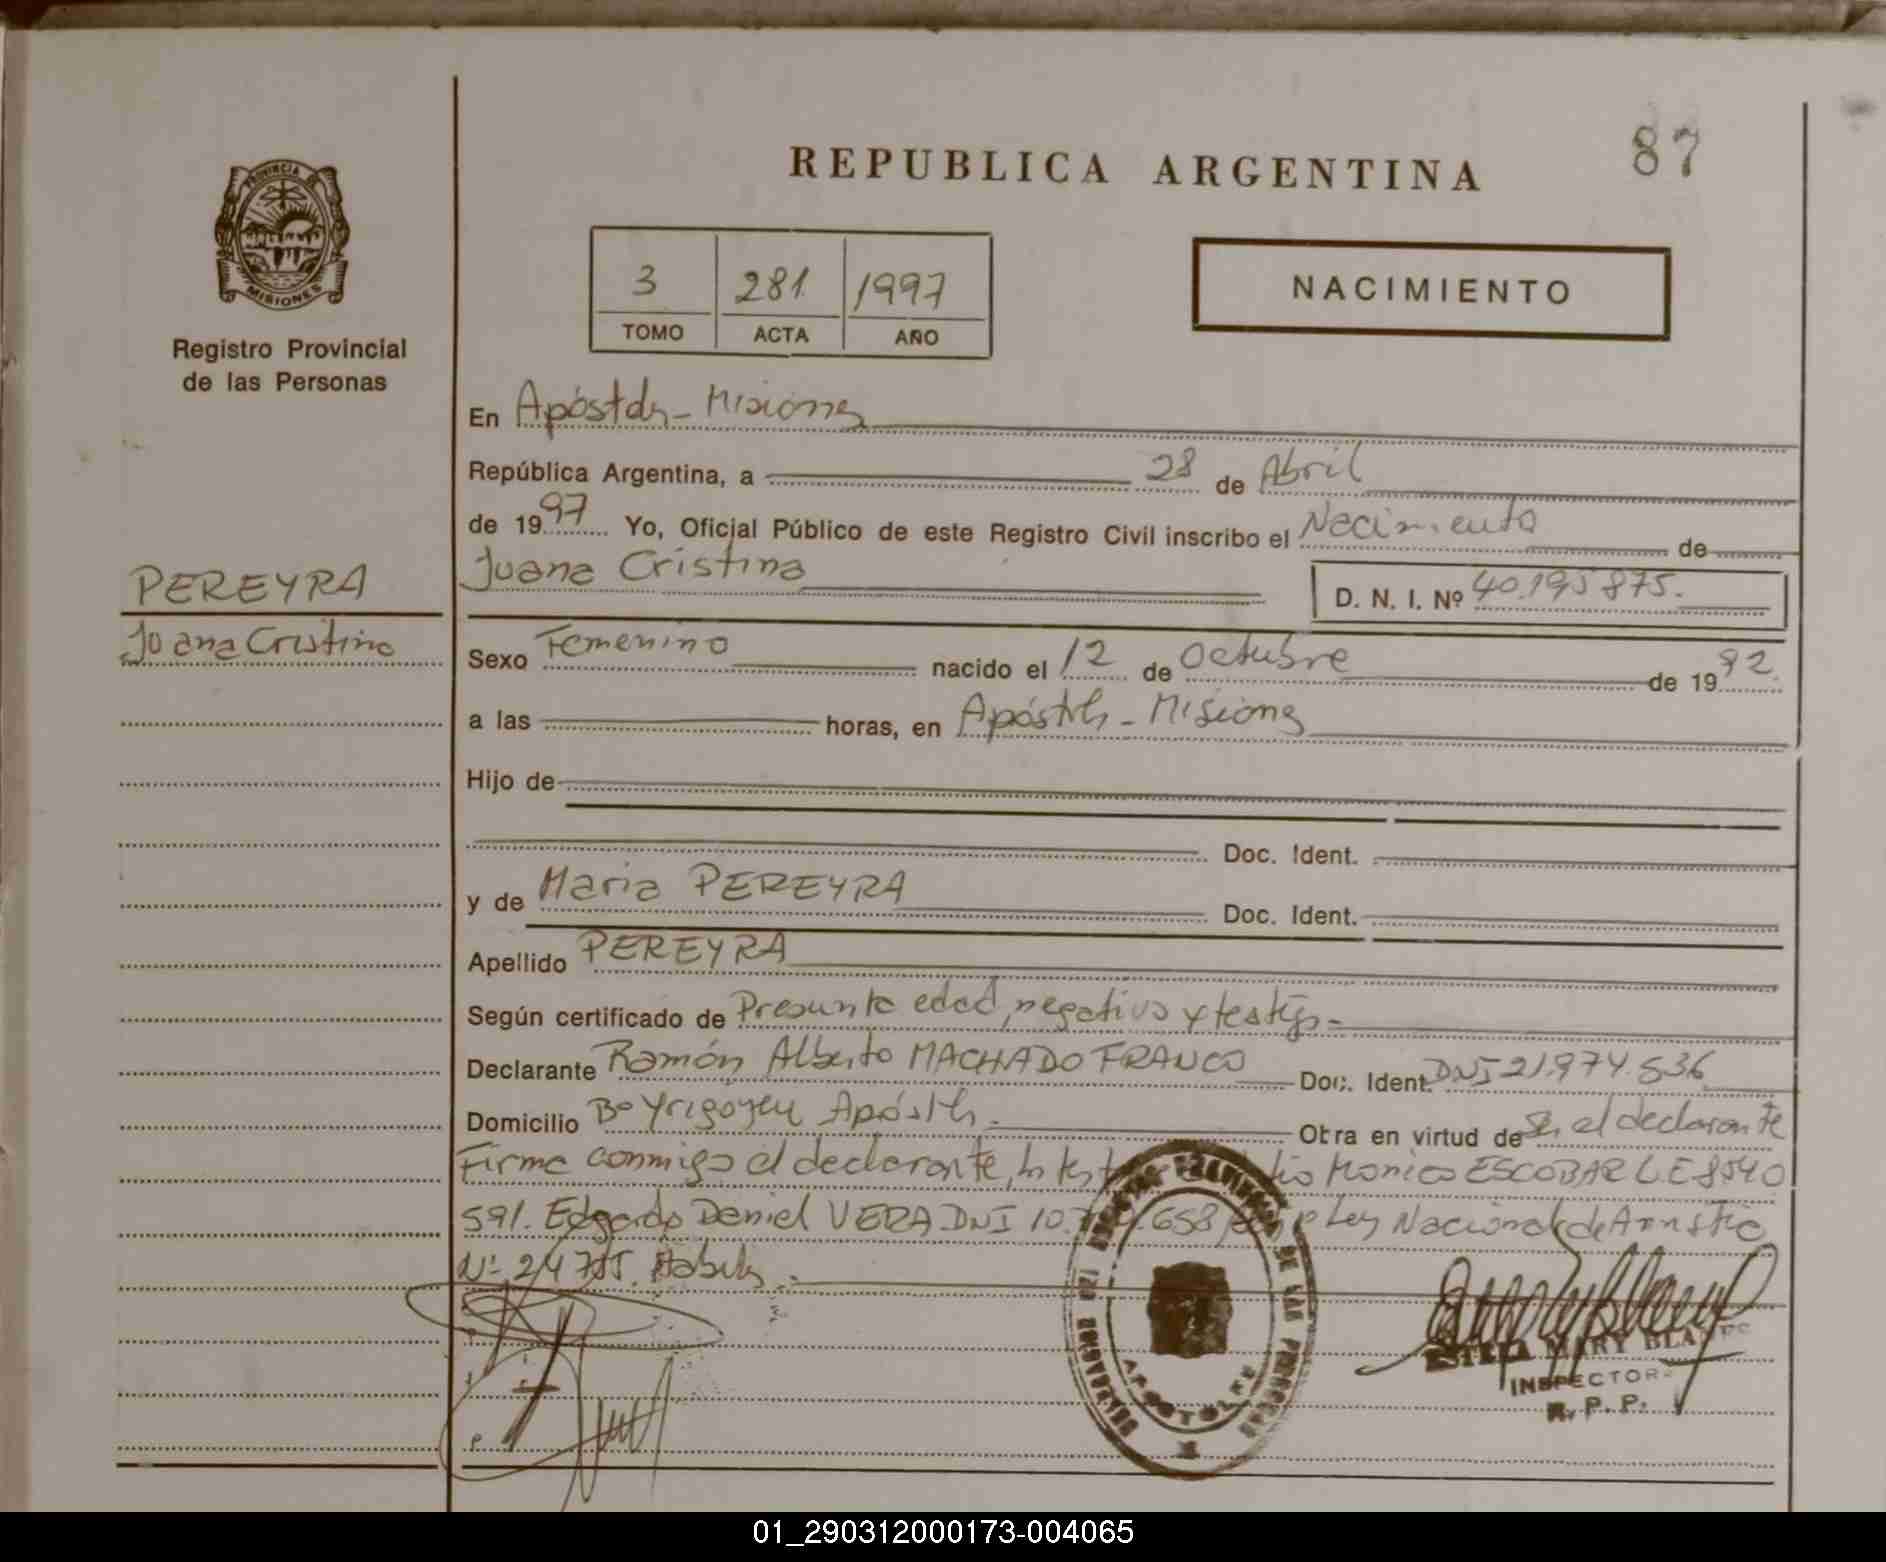 87
REPUBLICA ARGENTINA
PROVINCIA DE
MISIONES
Registro Provincial
de las Personas
3 281 1997
TOMO ACTA AÑO
NACIMIENTO
En Apóstoles - Misiones
República Argentina, a 28 de Abril
de 1997 Yo, Oficial Público de este Registro Civil inscribo el Nacimiento de
PEREYRA
Juana Cristina
Juana Cristina D. N. I. Nº 40.195875.
Sexo Femenino nacido el 12 de Octubre de 1992.
a las horas, en Apóstoles - Misiones
Hijo de
Doc. Ident.
y de Maria PEREYRA Doc. Ident.
Apellido PEREYRA
Según certificado de Presunta edad, negativo y testigos -
Declarante Ramón Alberto MACHADO FRANCO Doc. Ident. DNI 21.974.536
Domicilio Bo Yrigoyen Apóstoles. Otra en virtud de Ser el declarante
Firma conmigo el declarante, los Monica ESCOBAR L.E 8540
591. Edgardo Daniel VERA DNI 10. .658 Ley Nacional de Amnistia
Nº 24755.
DE LAS PERSONAS
APOSTOLES
ESTELA MARY BLANC
INSPECTOR
R. P. P.
01_290312000173-004065